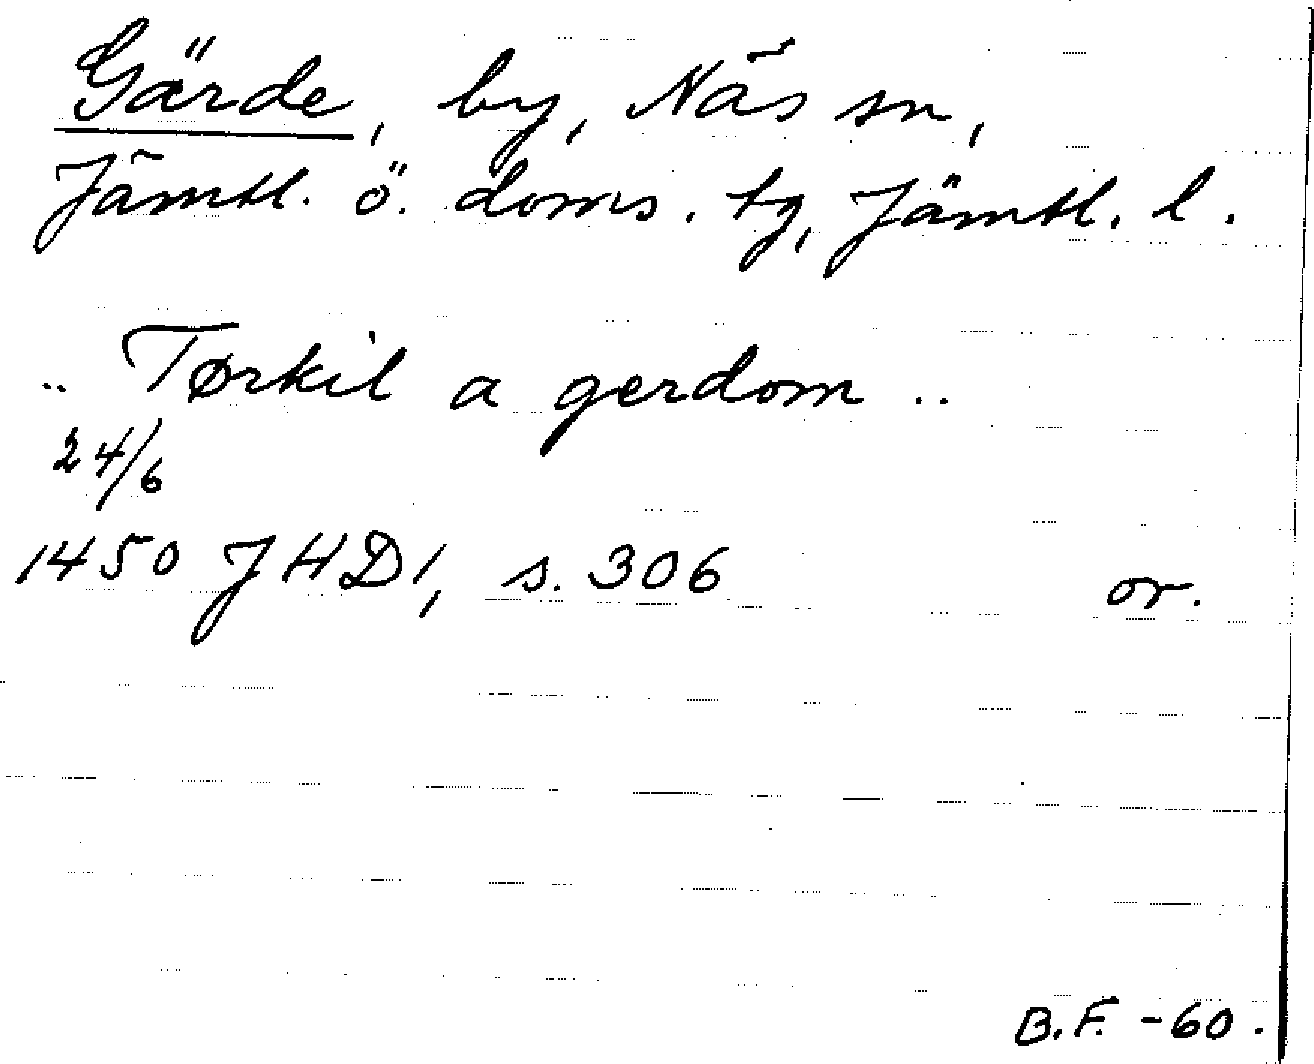 Gärde, by, Näs sn,
Jämtl. ö. doms. tg, Jämtl. l.
.. Tørkil a gerdom ..
24/6
1450 JHD1, s. 306 or.
B.F. -60.